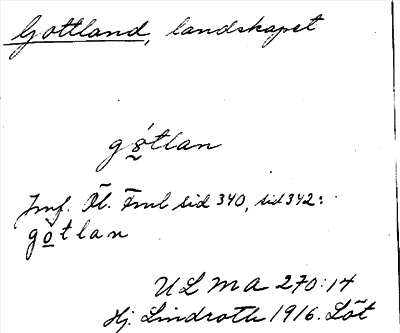 Gottland, landskapet
gótlan
Jmf. Öl. Fml sid 340, sid 342:
gòtlan
ULMA 270:14
Hj. Lindroth 1916. Löt